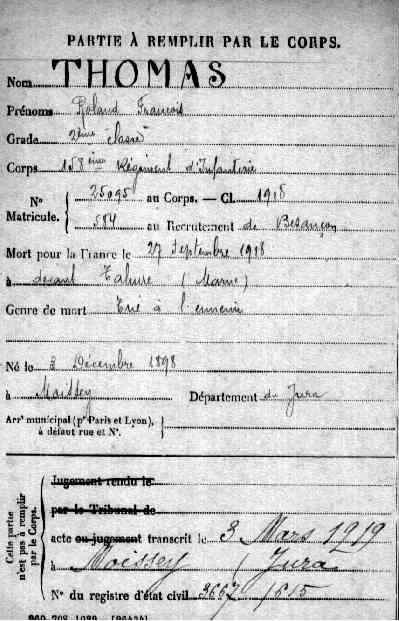 PARTIE À REMPLIR PAR LE CORPS.
Nom THOMAS
Prénoms Roland François
Grade 2ème classe
Corps 158ème Régiment d'Infanterie
N° Matricule. { 25095 au Corps. — Cl. 1918
584 au Recrutement de Besançon
Mort pour la France le 27 Septembre 1918
à devant Tahure (Marne)
Genre de mort Tué à l'ennemi
Né le 2 Décembre 1898
à Moissey Département du Jura
Arr¹ municipal (pr Paris et Lyon), à défaut rue et N°. }
Cette partie n'est pas à remplir par le Corps.
Jugement rendu le
par le Tribunal de
acte ou jugement transcrit le 3 Mars 1919
à Moissey (Jura
N° du registre d'état civil 3667/1515